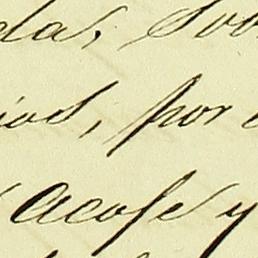 da, Sob
ios, por
Acose y